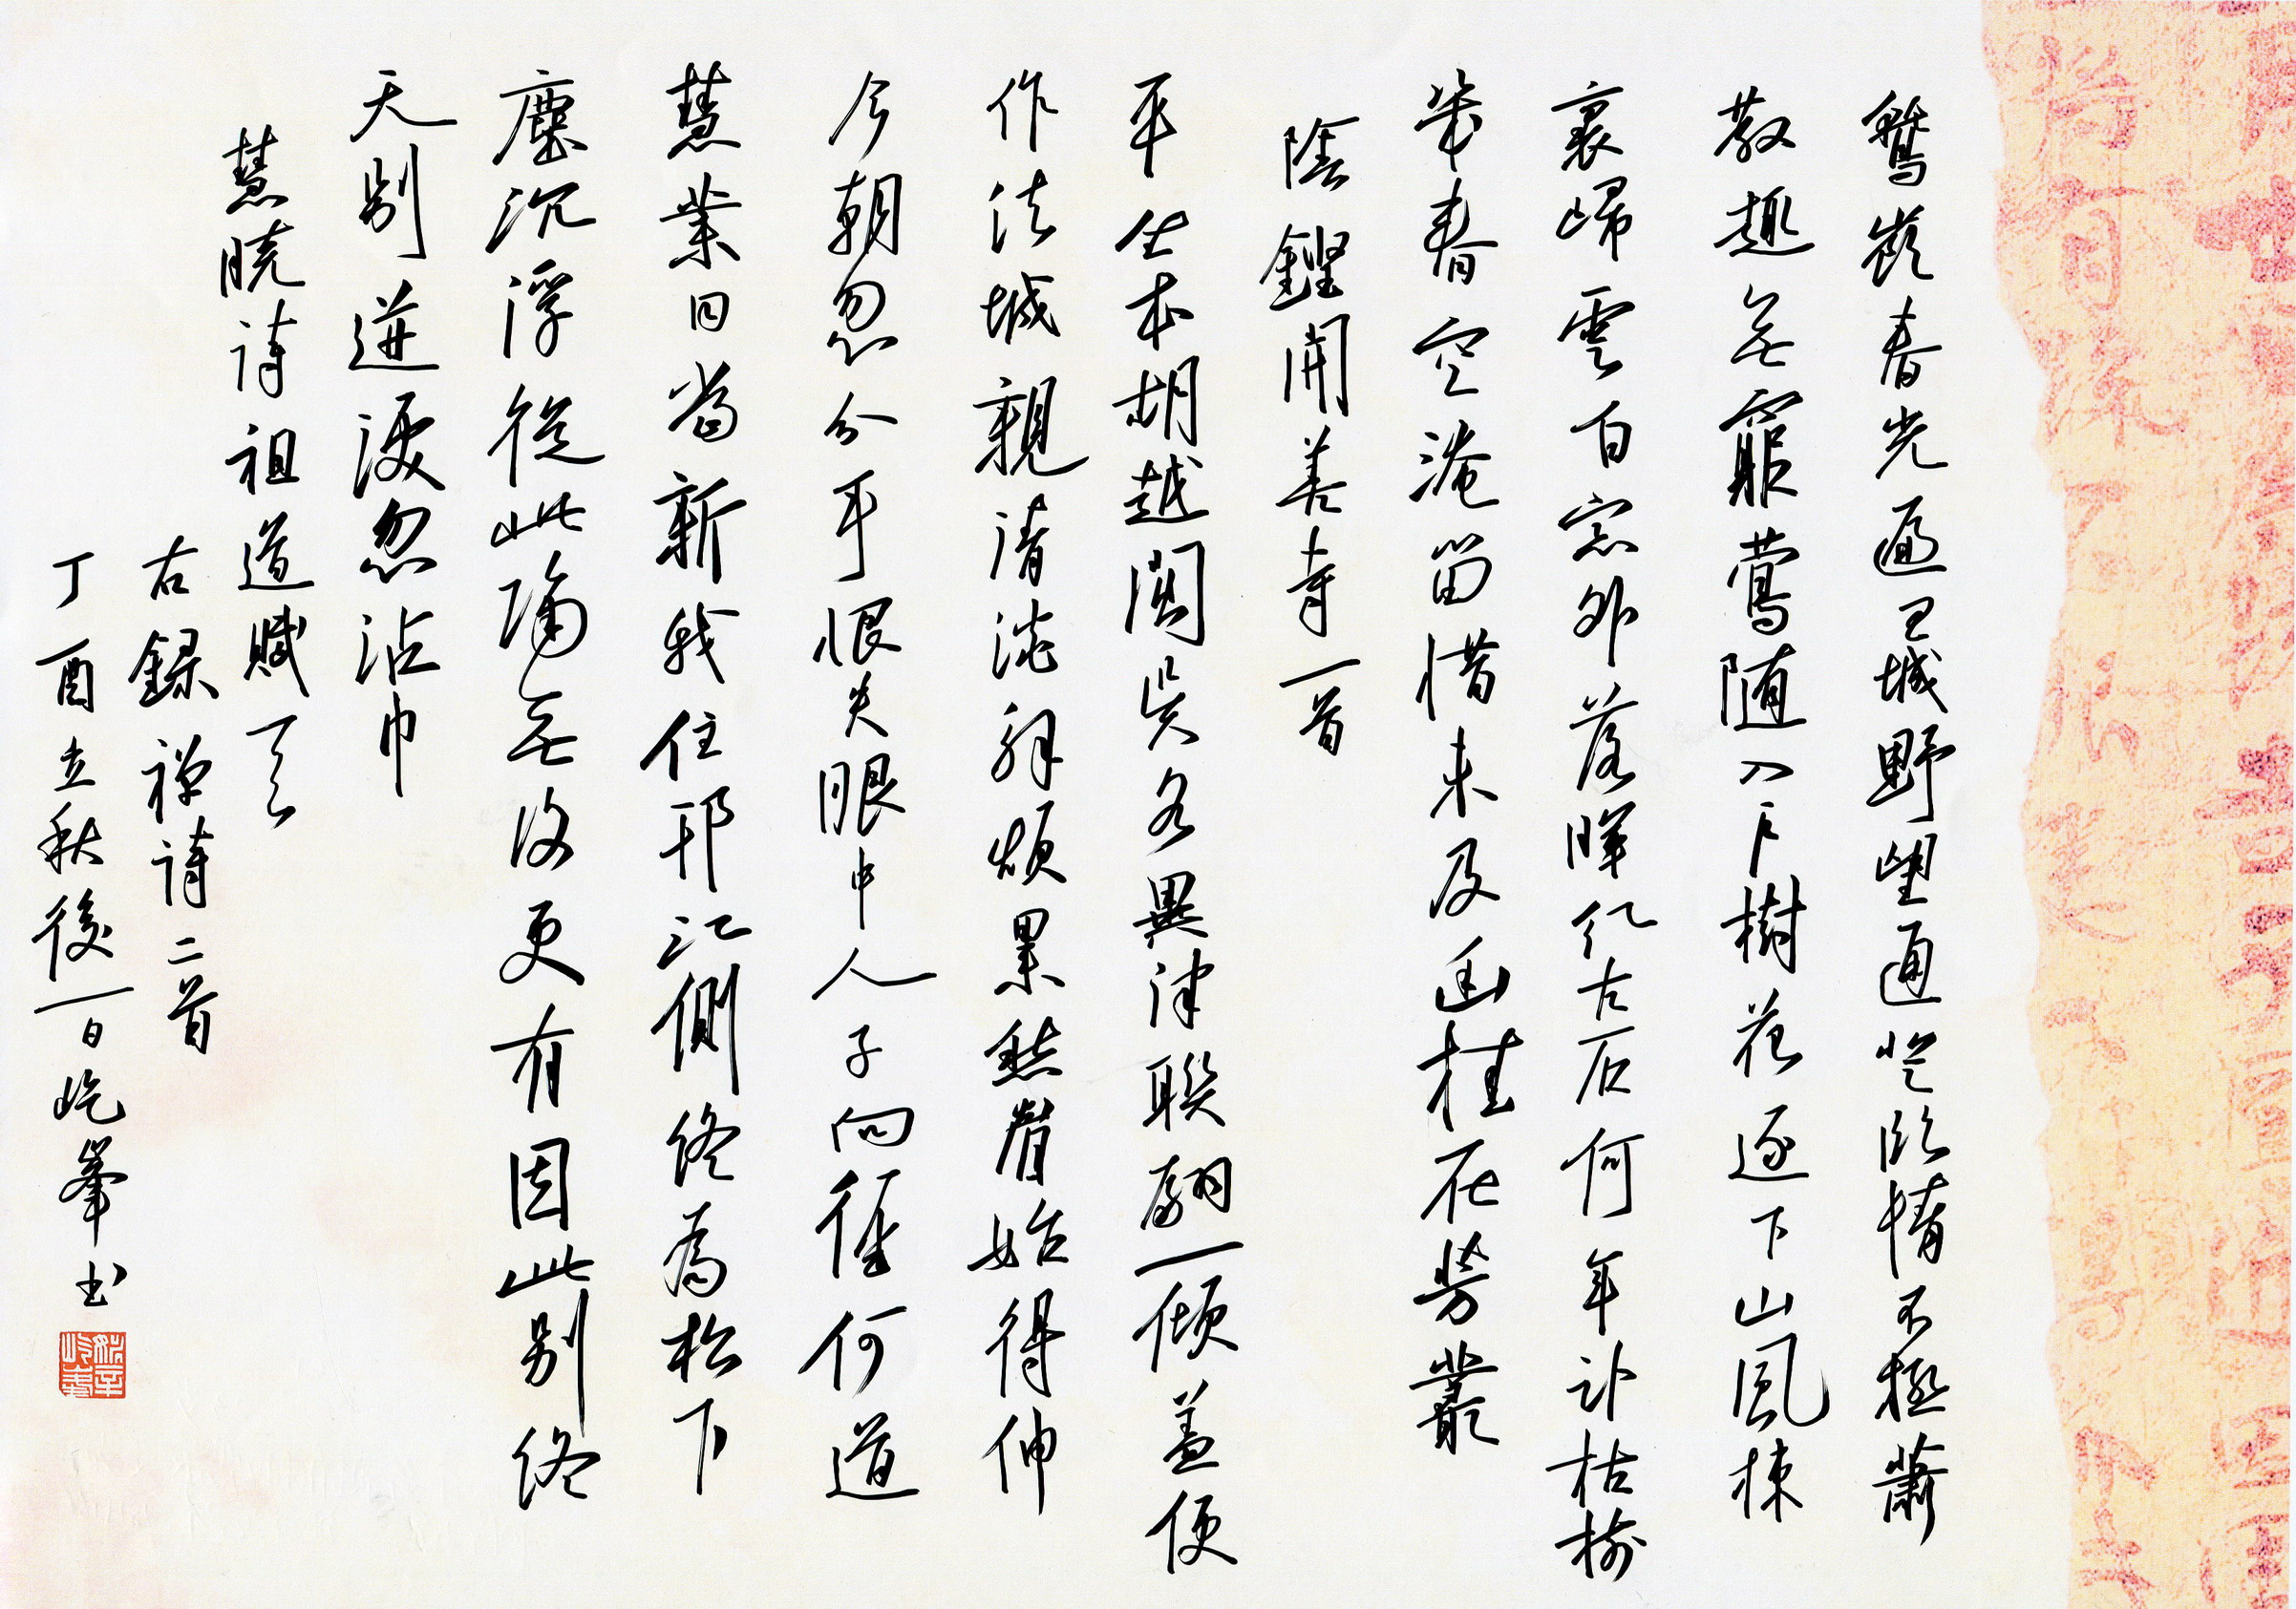 鷲嶺春光遍王城野望通登臨情不極蕭
散趣無窮鶯隨入戶樹花逐下山風棟
裏歸雲白窓外落暉紅古石何年卧枯樹
幾春空淹留惜未及幽桂在芳叢
陰鏗開善寺一首
平生本胡越關吳各異津聯翩一傾蓋便
作法城親清談解煩累愁眉始得伸
今朝忽分手恨失眼中人子向徑何道
慧業日當新我住邗江側終為松下
塵沉浮從此隔無復更有因此別終
天別迸淚忽沾巾
慧曉詩祖道賦
右録禅詩二首
丁酉立秋後一日屹峯书